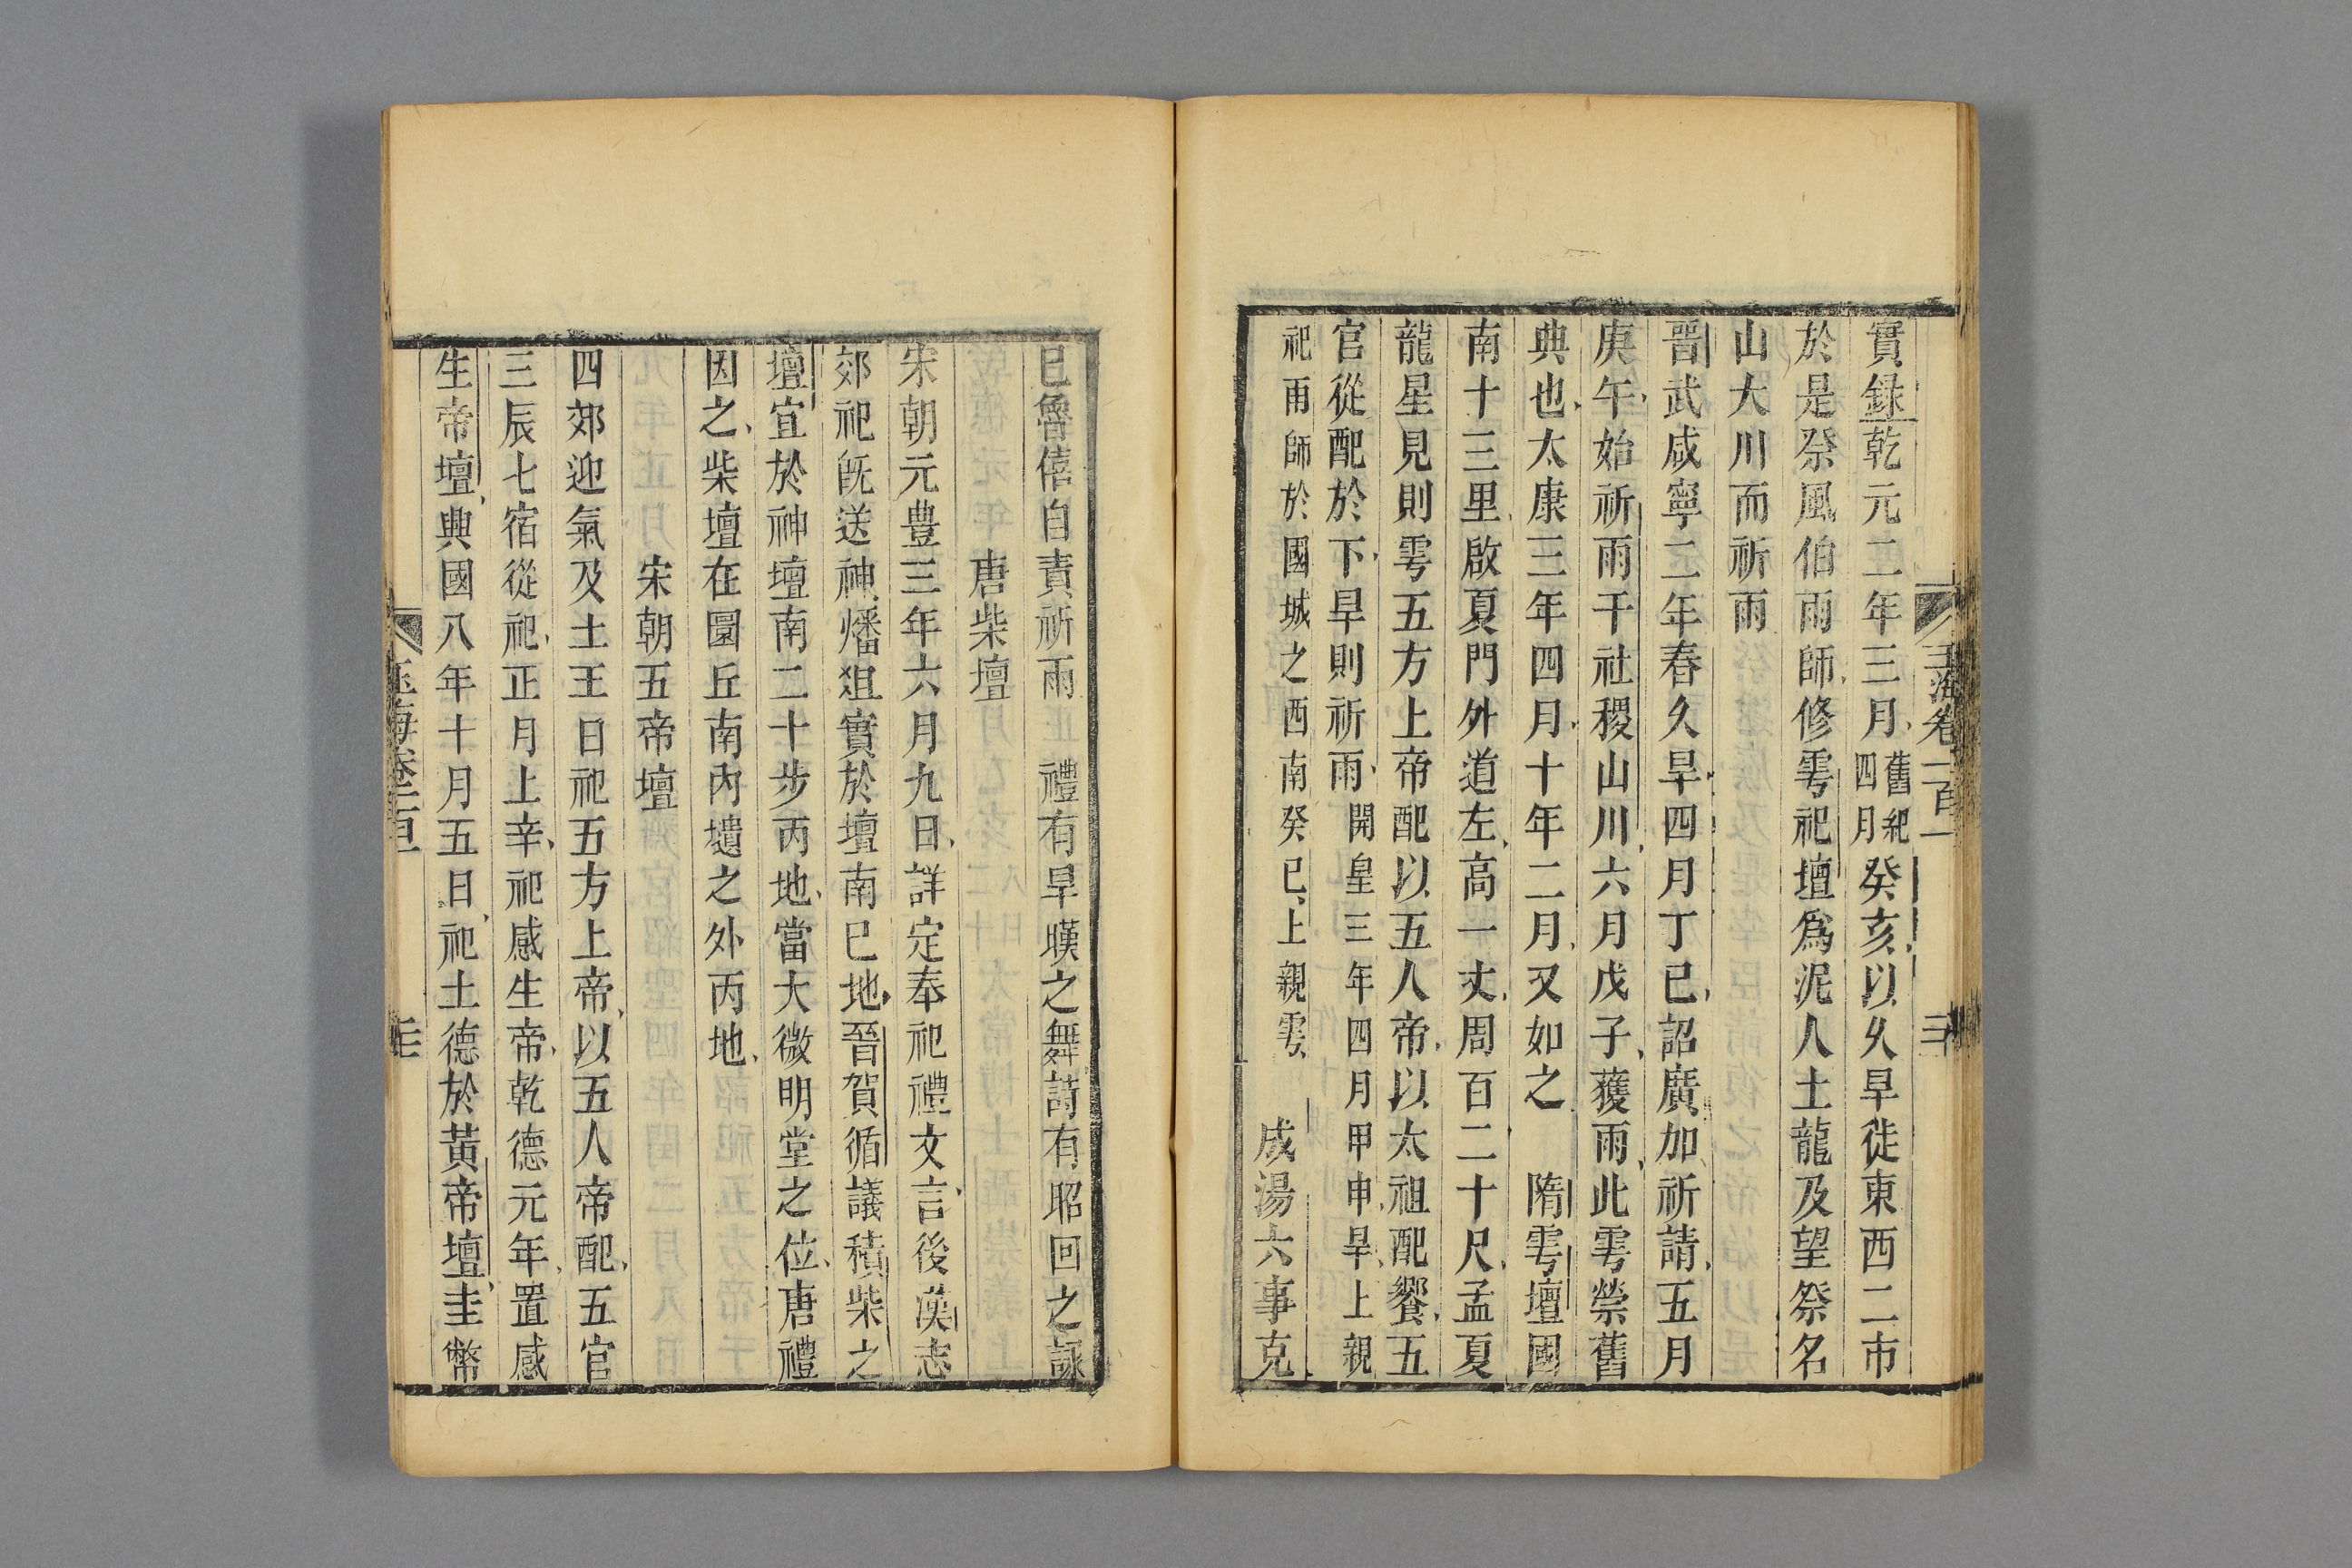 玉海卷一百一
實録乾元二年三月舊紀四月癸亥以久旱徙東西二市
於是祭風伯雨師修雩祀壇爲泥人土龍及望祭名
山大川而祈雨
晉武咸寧二年春久旱四月丁巳詔廣加祈請五月
庚午始祈雨于社稷山川六月戊子獲雨此雩禜舊
典也太康三年四月十年二月又如之 隋雩壇國
南十三里啟夏門外道左高一丈周百二十尺孟夏
龍星見則雩五方上帝配以五人帝以太祖配饗五
官從配於下旱則祈雨開皇三年四月甲申旱上親
祀雨師於國城之西南癸巳上親雩
成湯六事克
巳魯僖自責祈雨 禮有旱暵之舞詩有昭回之詠
唐柴壇
宋朝元豊三年六月九日詳定奉祀禮文言後漢志
郊祀旣送神燔俎實於壇南巳地晉賀循議積柴之
壇宜於神壇南二十步丙地當大微明堂之位唐禮
因之柴壇在圜丘南內壝之外丙地
宋朝五帝壇
四郊迎氣及土王日祀五方上帝以五人帝配五官
三辰七宿從祀正月上辛祀感生帝乾德元年置感
生帝壇興國八年十月五日祀土德於黃帝壇圭幣
玉海卷一百一